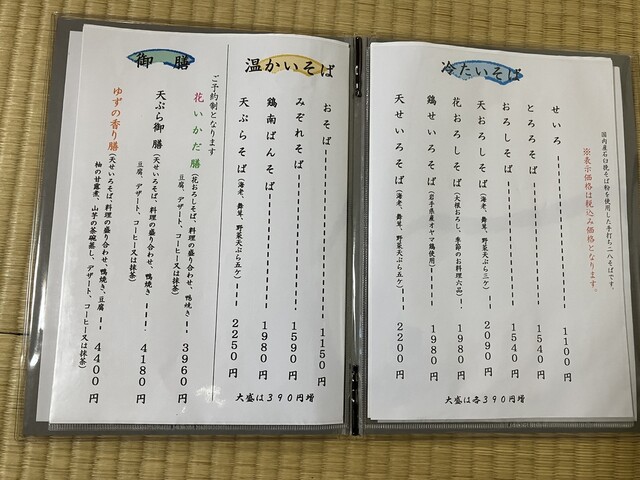 冷たいそば
国内産石臼挽そば粉を使用した手打ち二八そばです。
※表示価格は税込み価格となります。
せいろ 1100円
とろろそば 1540円
おろしそば 1540円
天おろしそば(海老、舞茸、野菜天ぷら三ケ) 2090円
花おろしそば(大根おろし、季節のお料理六品) 1980円
鶏せいろそば(岩手県産オヤマ鶏使用) 1980円
天せいろそば(海老、舞茸、野菜天ぷら五ケ) 2200円
大盛は各390円増
温かいそば
おそば 1150円
みぞれそば 1590円
鶏南ばんそば 1980円
天ぷらそば(海老、舞茸、野菜天ぷら五ケ) 2250円
大盛は390円増
御膳
ご予約制となります
花いかだ膳(花おろしそば、料理の盛り合わせ、鴨焼き
豆腐、デザート、コーヒー又は抹茶) 3960円
天ぷら御膳(天せいろそば、料理の盛り合わせ、鴨焼き
豆腐、デザート、コーヒー又は抹茶) 4180円
ゆずの香り膳(天せいろそば、料理の盛り合わせ、鴨焼き、豆腐
柚の甘露煮、山芋の茶碗蒸し、デザート、コーヒー又は抹茶) 4400円